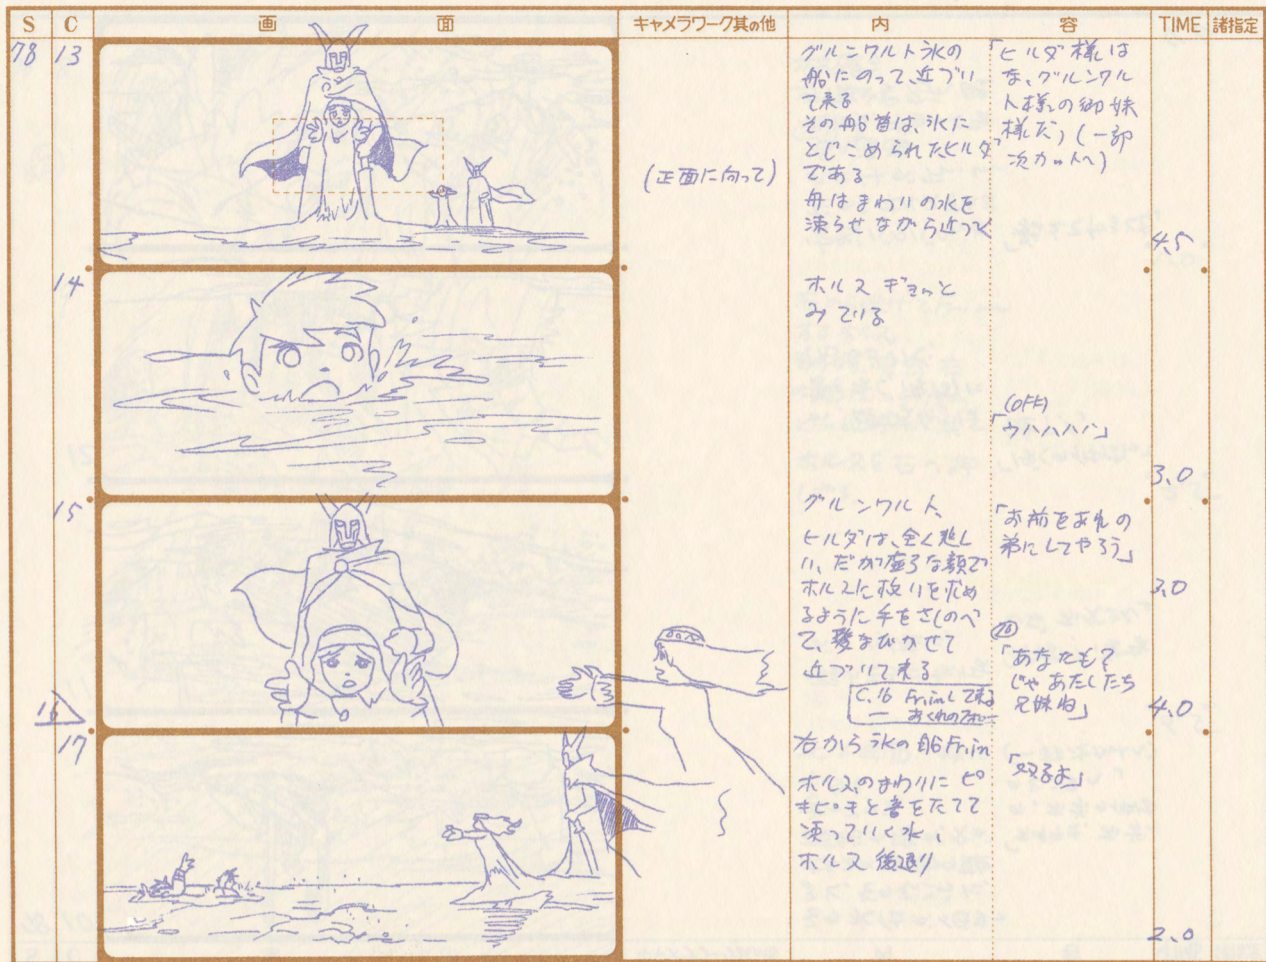 S C 画 面 キャメラワーク其の他 内 容 TIME 諸指定
78 13
(正面に向って)
グルンワルト氷の
船にのって、近づい
て来る
その船首は、氷に
とじこめられたヒルダ
である
舟はまわりの水を
凍らせながら近づく
「ヒルダ様は
な、グルンワル
ト様の御妹
様だ」(一部
次カットへ)
4.5
14
ホルス ギョッと
みている
(OFF)
「ウハハハハ」
3.0
15
グルンワルト、
ヒルダは、全く悲し
い、だが虚ろな顔で
ホルスに救いを求め
るように手をさしのべ
て、髪なびかせて
近づいて来る
C.16 Fr inして来る
「お前をあれの
弟にしてやろう」
3.0
16
「あなたも?
じゃあたしたち
兄妹ね」
4.0
17
右から氷の船Fr in
ホルスのまわりにピ
キピキと音をたてて
凍っていく水、
ホルス後退り
2.0